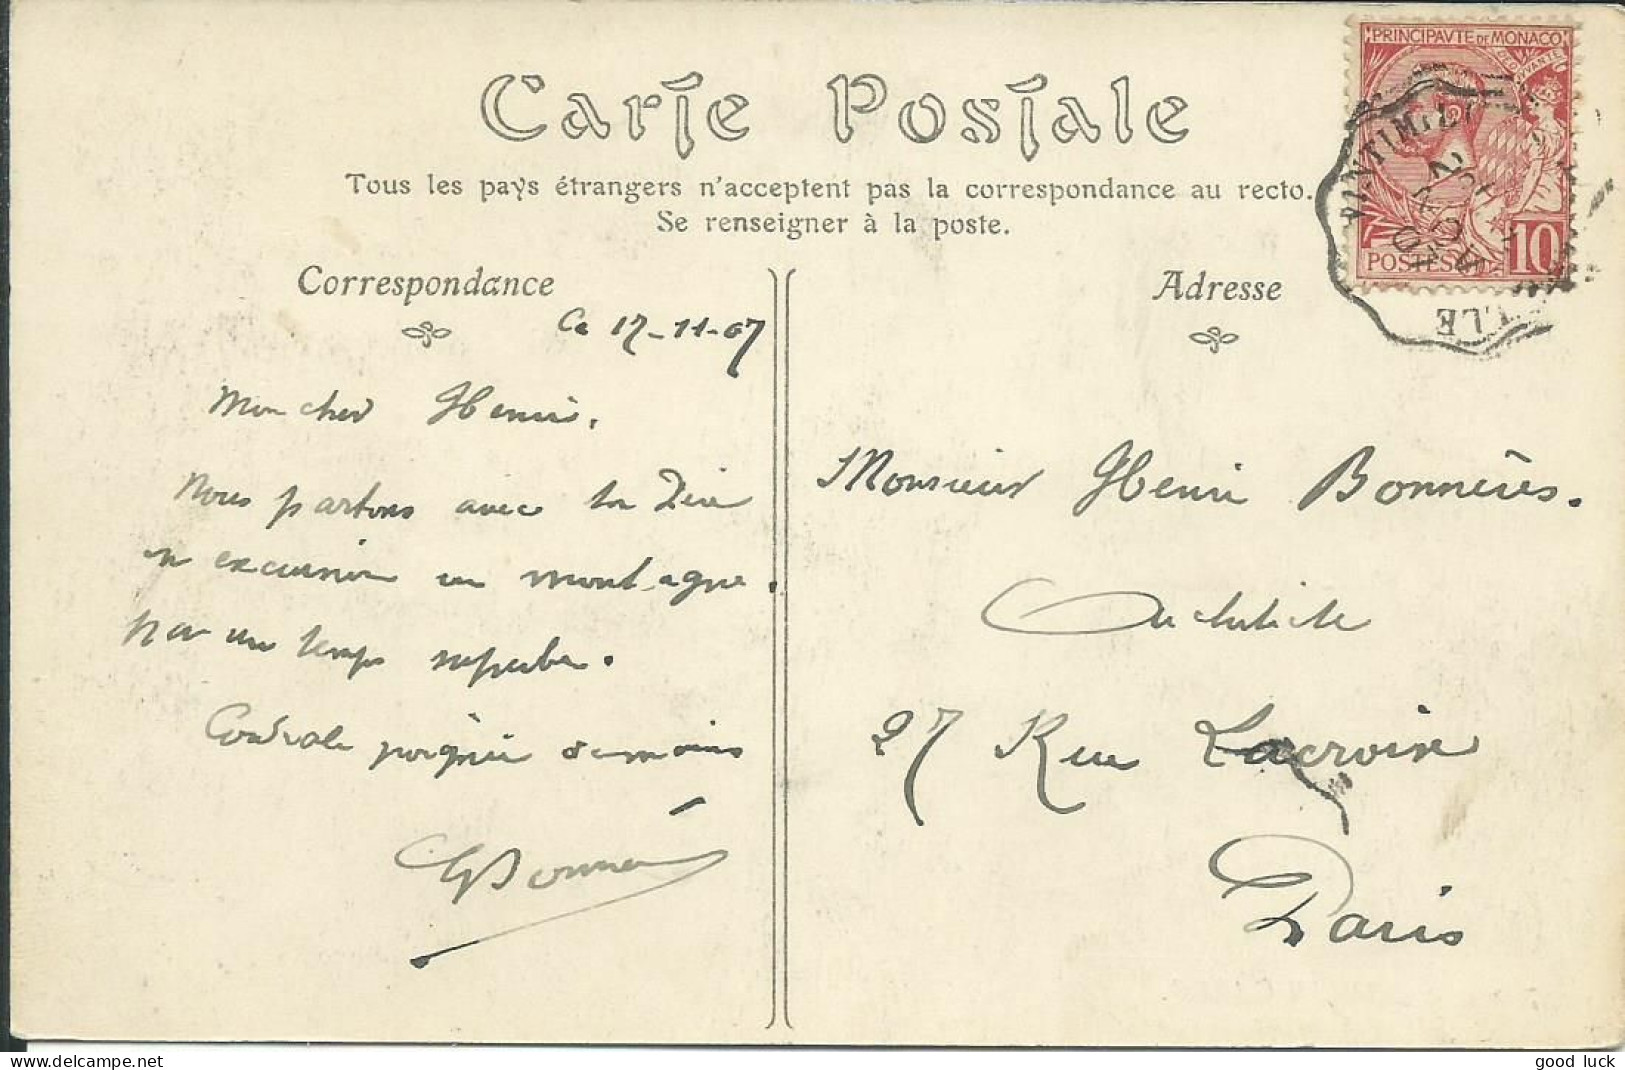 Carte Postale
Tous les pays étrangers n'acceptent pas la correspondance au recto.
Se renseigner à la poste.
Correspondance
Adresse
PRINCIPAVTE DE MONACO
POSTES
10
VINTIMI
LLE
Ce 17-11-07
Mon cher Henri.
Nous partons avec ton Père
en excursion en montagne.
par un temps superbe.
Cordiale poignée de mains
Monsieur Henri Bonnères.
Architecte
27 Rue Lacroix
Paris
good luck